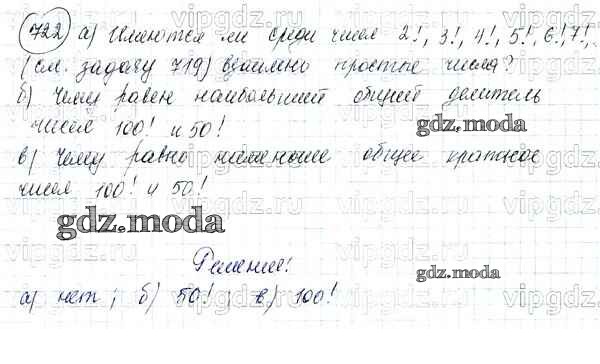 722 а) Имеются ли среди чисел 2!, 3!, 4!, 5!, 6!, 7!,
(см. задачу 719) взаимно простые числа?
б) Чему равен наибольший общий делитель
чисел 100! и 50!
в) Чему равно наименьшее общее кратное
чисел 100! и 50!
Решение!
а) нет; б) 50!; в) 100!
gdz.moda
gdz.moda
gdz.moda
vipgdz.ru